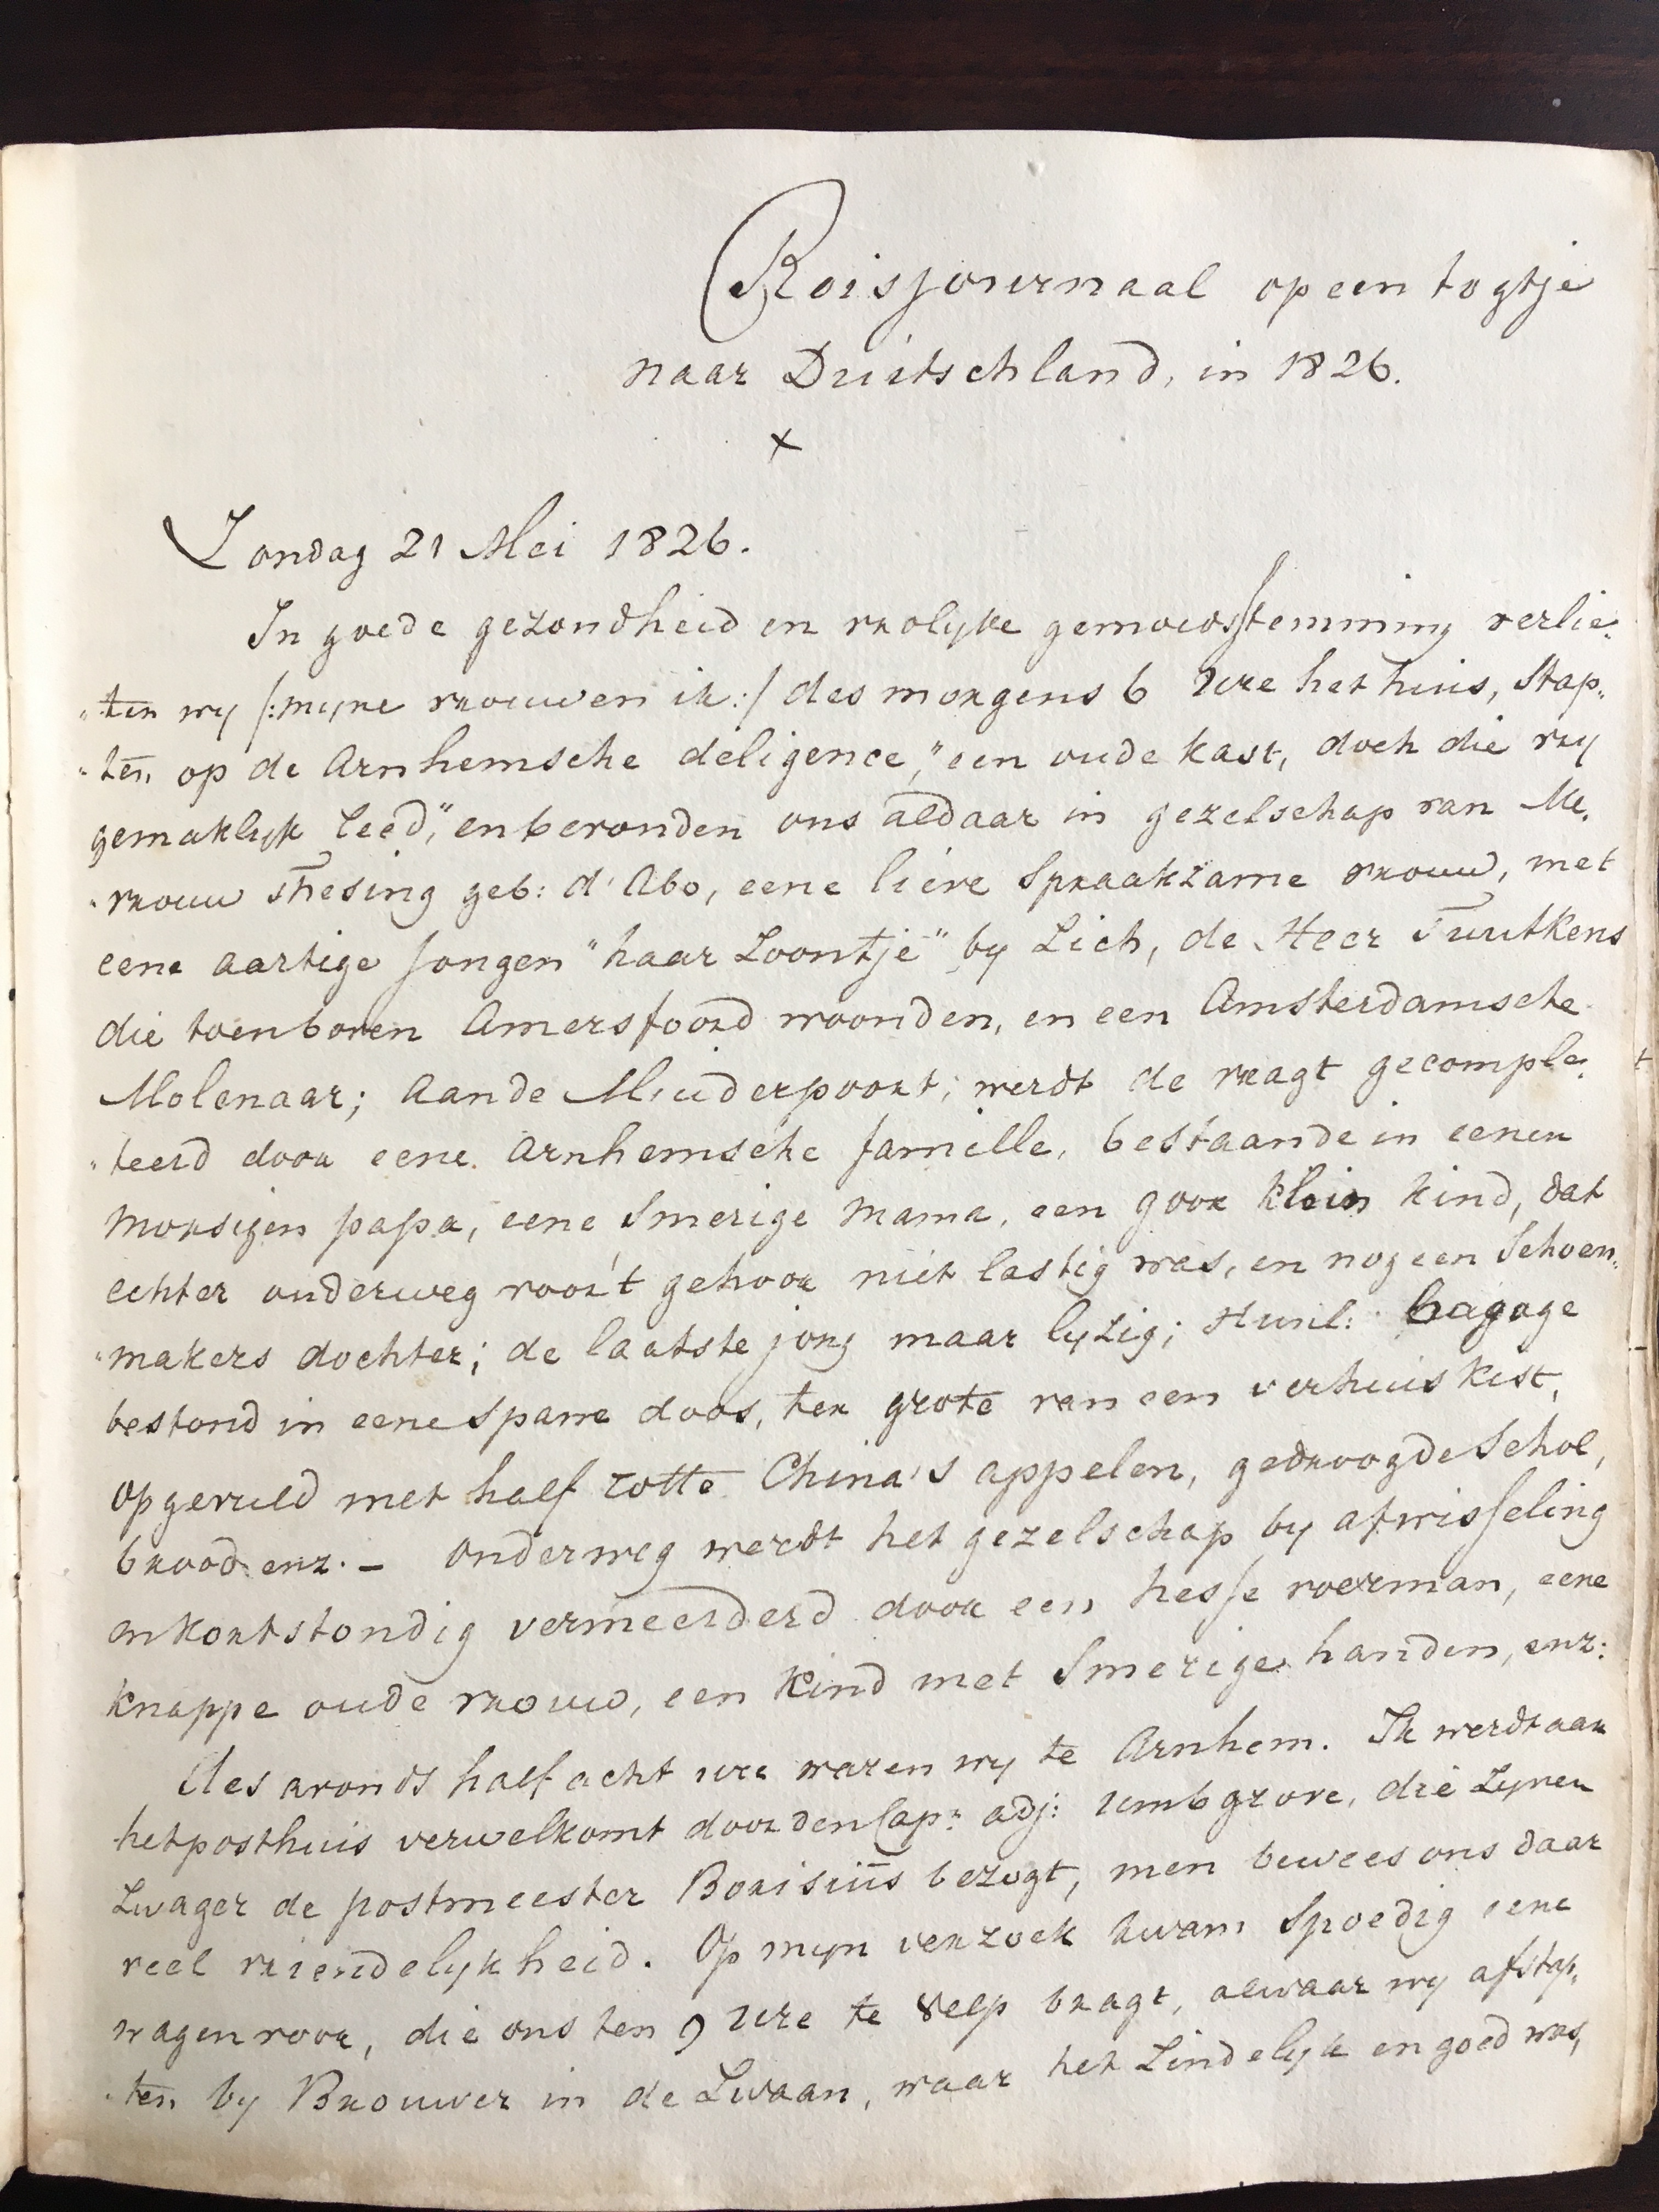 Reisjournaal op een togtje
naar Duitschland, in 1826.
x
Zondag 21 Mei 1826.
In goede gezondheid en vrolyke gemoedsstemming verlie„
„ten wy /:myne vrouw en ik:/ des morgens 6 Ure het huis, Stap„
„ten op de Arnhemsche deligence, "een oude kast, doch die vry
gemaklyk reed," en bevonden ons aldaar in gezelschap van Me„
„vrouw Thesing geb: d'Abo, eene lieve Spraakzame vrouw, met
eene aartige jongen "haar Loontje" by zich, de Heer Tuutkens
die toen boven Amersfoord woonden, en een Amsterdamsche
Molenaar; aan de Muiderpoort, werdt de vragt gecomple„
„teerd door eene Arnhemsche famille, bestaande in eenen
morsigen papa, eene Smerige mama, een goor klein kind, dat
echter onderweg voor 't gehoor niet lastig was, en nog een Schoen„
„makers dochter; de laatste jong maar lyzig; Hunl: bagage
bestond in eene Spane doos, ter grote van een verhuis kist,
opgevuld met half rotte China's appelen, gedroogde Schol,
brood enz. – Onderweg werdt het gezelschap by afwisseling
en kortstondig vermeerderd door een hesse voerman, eene
knappe oude vrouw, een kind met Smerige handen, enz:
des avonds half acht ure waren wy te Arnhem. Ik werdt aan
het posthuis verwelkomt door den Capn adj: Umbgrove, die zynen
Zwager de postmeester Borisius bezogt, men bewees ons daar
veel vriendelykheid. Op myn verzoek kwam Spoedig eene
wagen voor, die ons ten 9 Ure te Velp bragt, alwaar wy afstap„
„ten by Brouwer in de Zwaan, waar het Zindelyk en goed was,